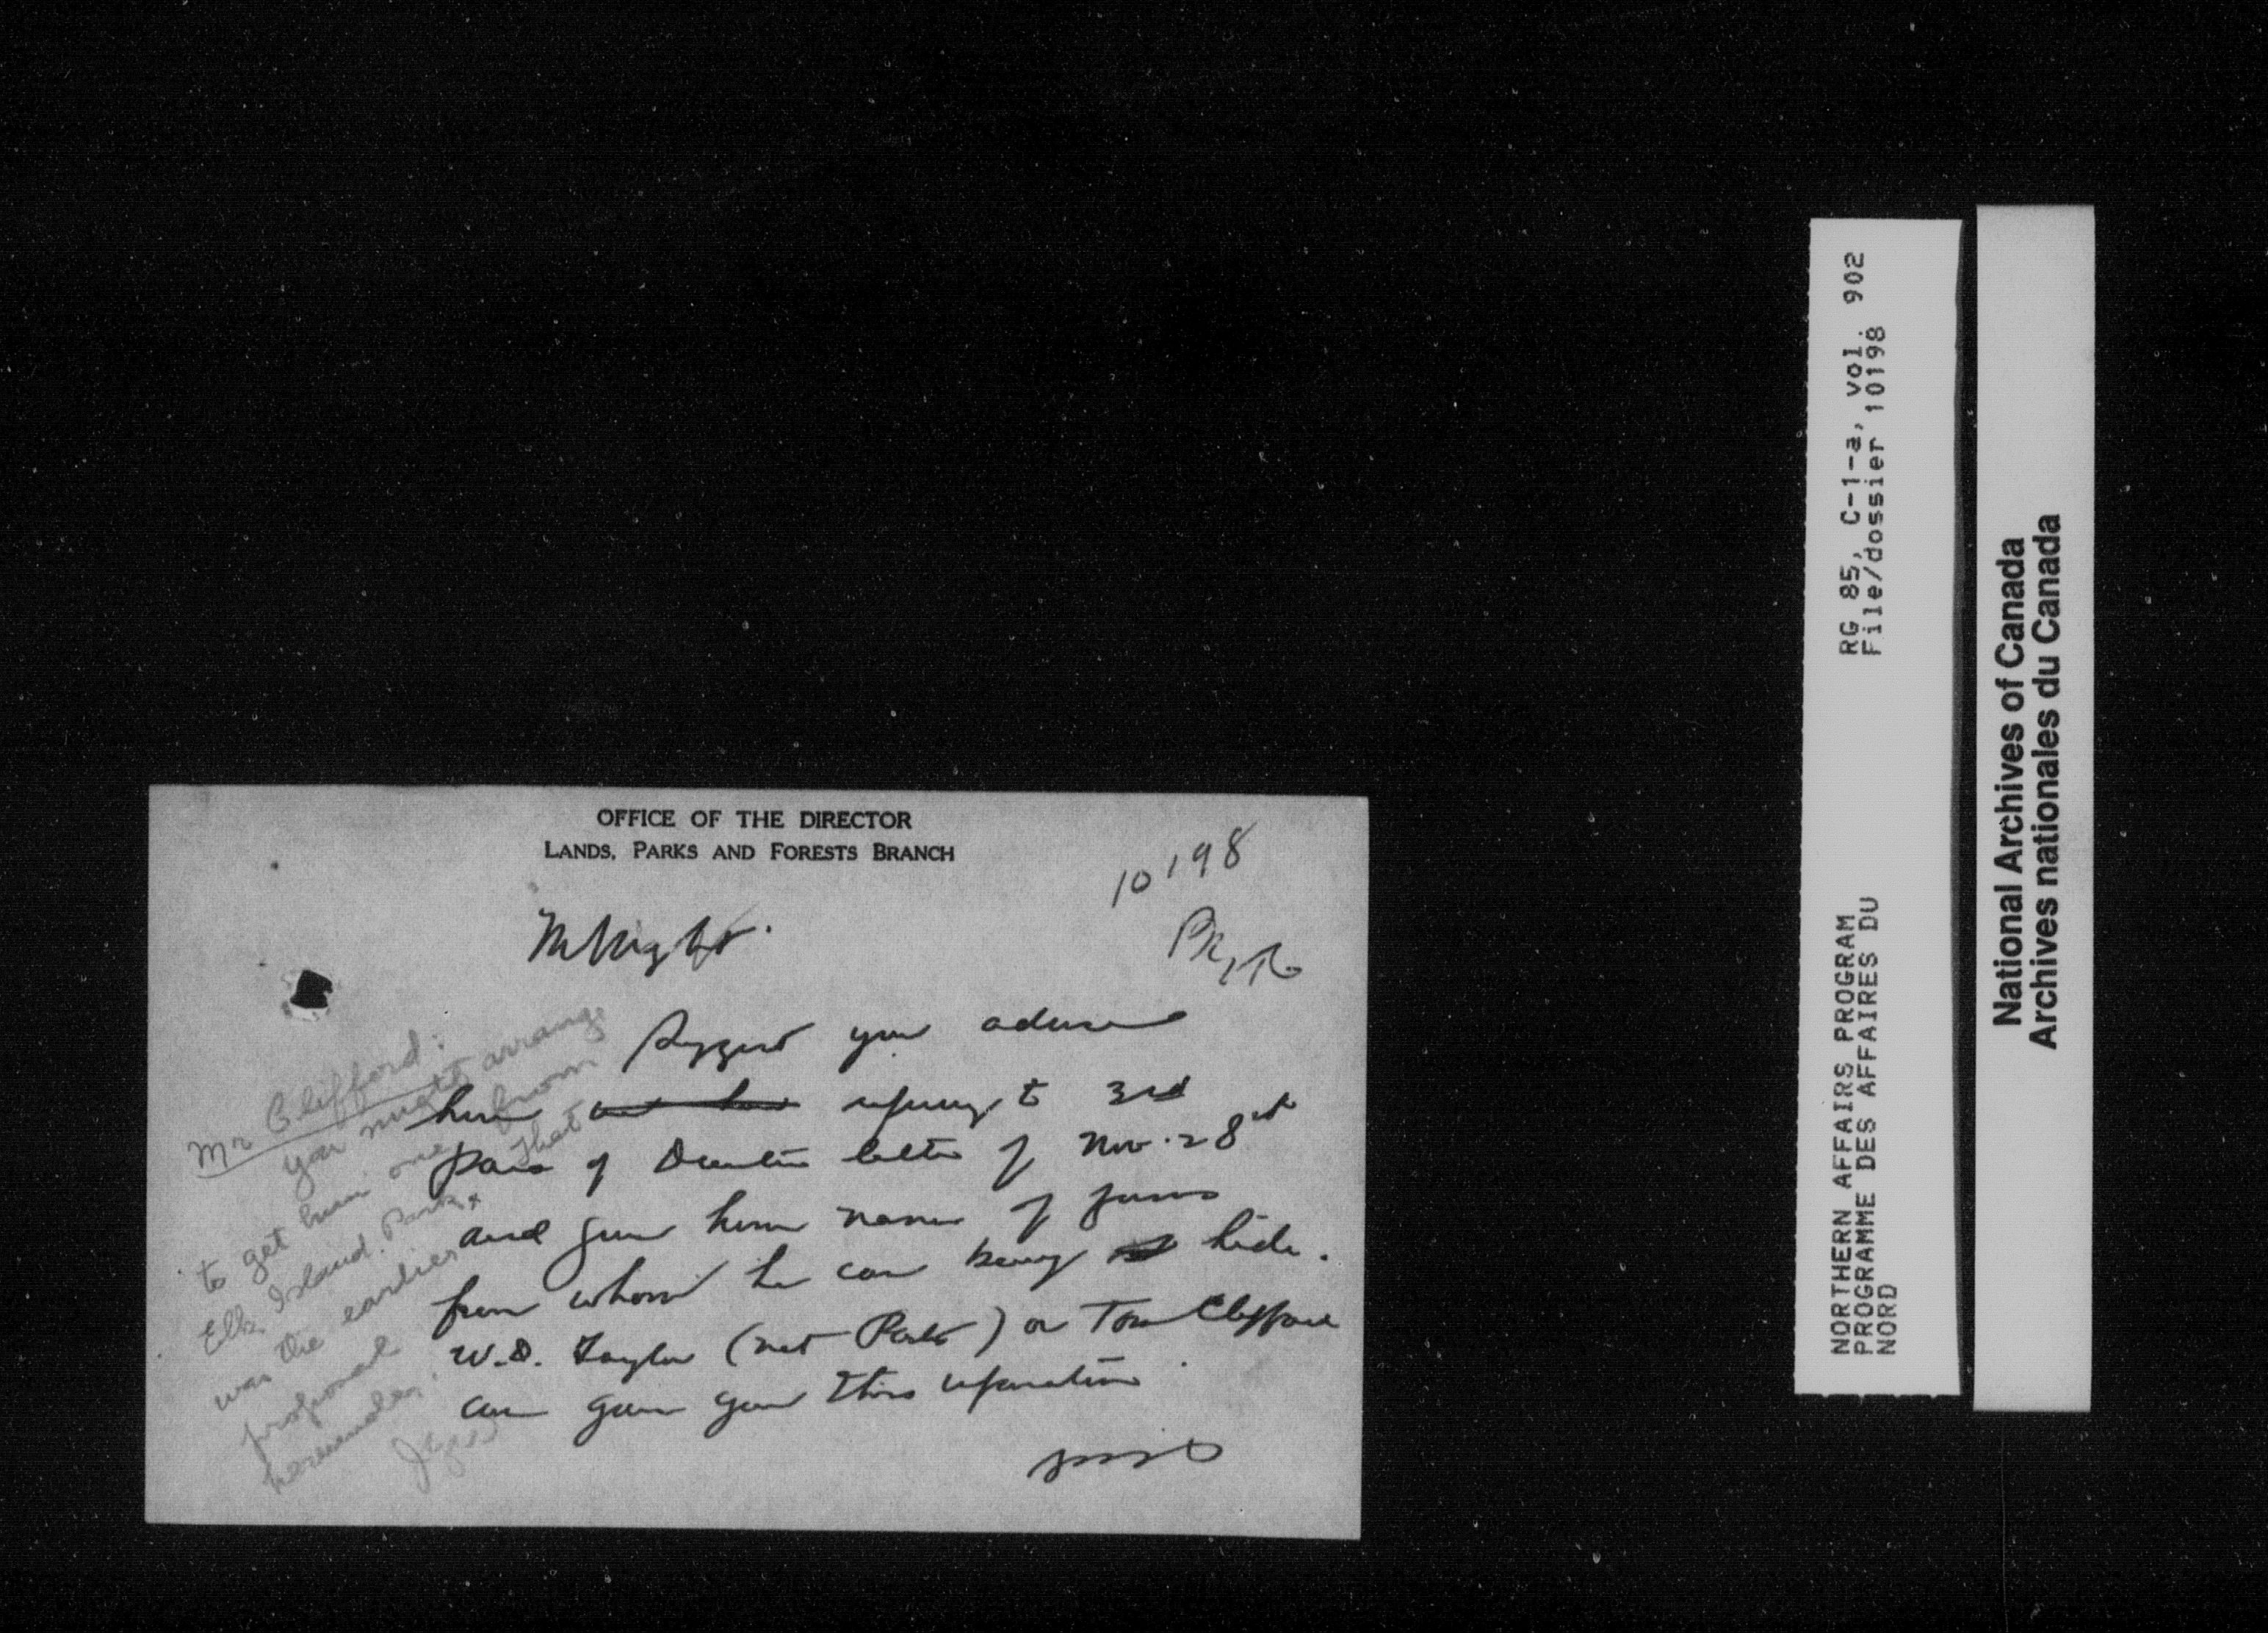 OFFICE OF THE DIRECTOR
LANDS, PARKS AND FORESTS BRANCH
10198
Suggest you advise
him refering to 3rd
para of letter of Nov. 28
and give him name of firms
from whom he can buy hide.
W.D. Taylor (Nat Parks) or Tom Clifford
can give you this information
Mr Clifford:
you might arrange
to get him one from
Elk Island Park. That
was the earlier
proposal
J
RG 85, C-1-a, vol. 902
File/dossier 10198
NORTHERN AFFAIRS PROGRAM
PROGRAMME DES AFFAIRES DU
NORD
National Archives of Canada
Archives nationales du Canada